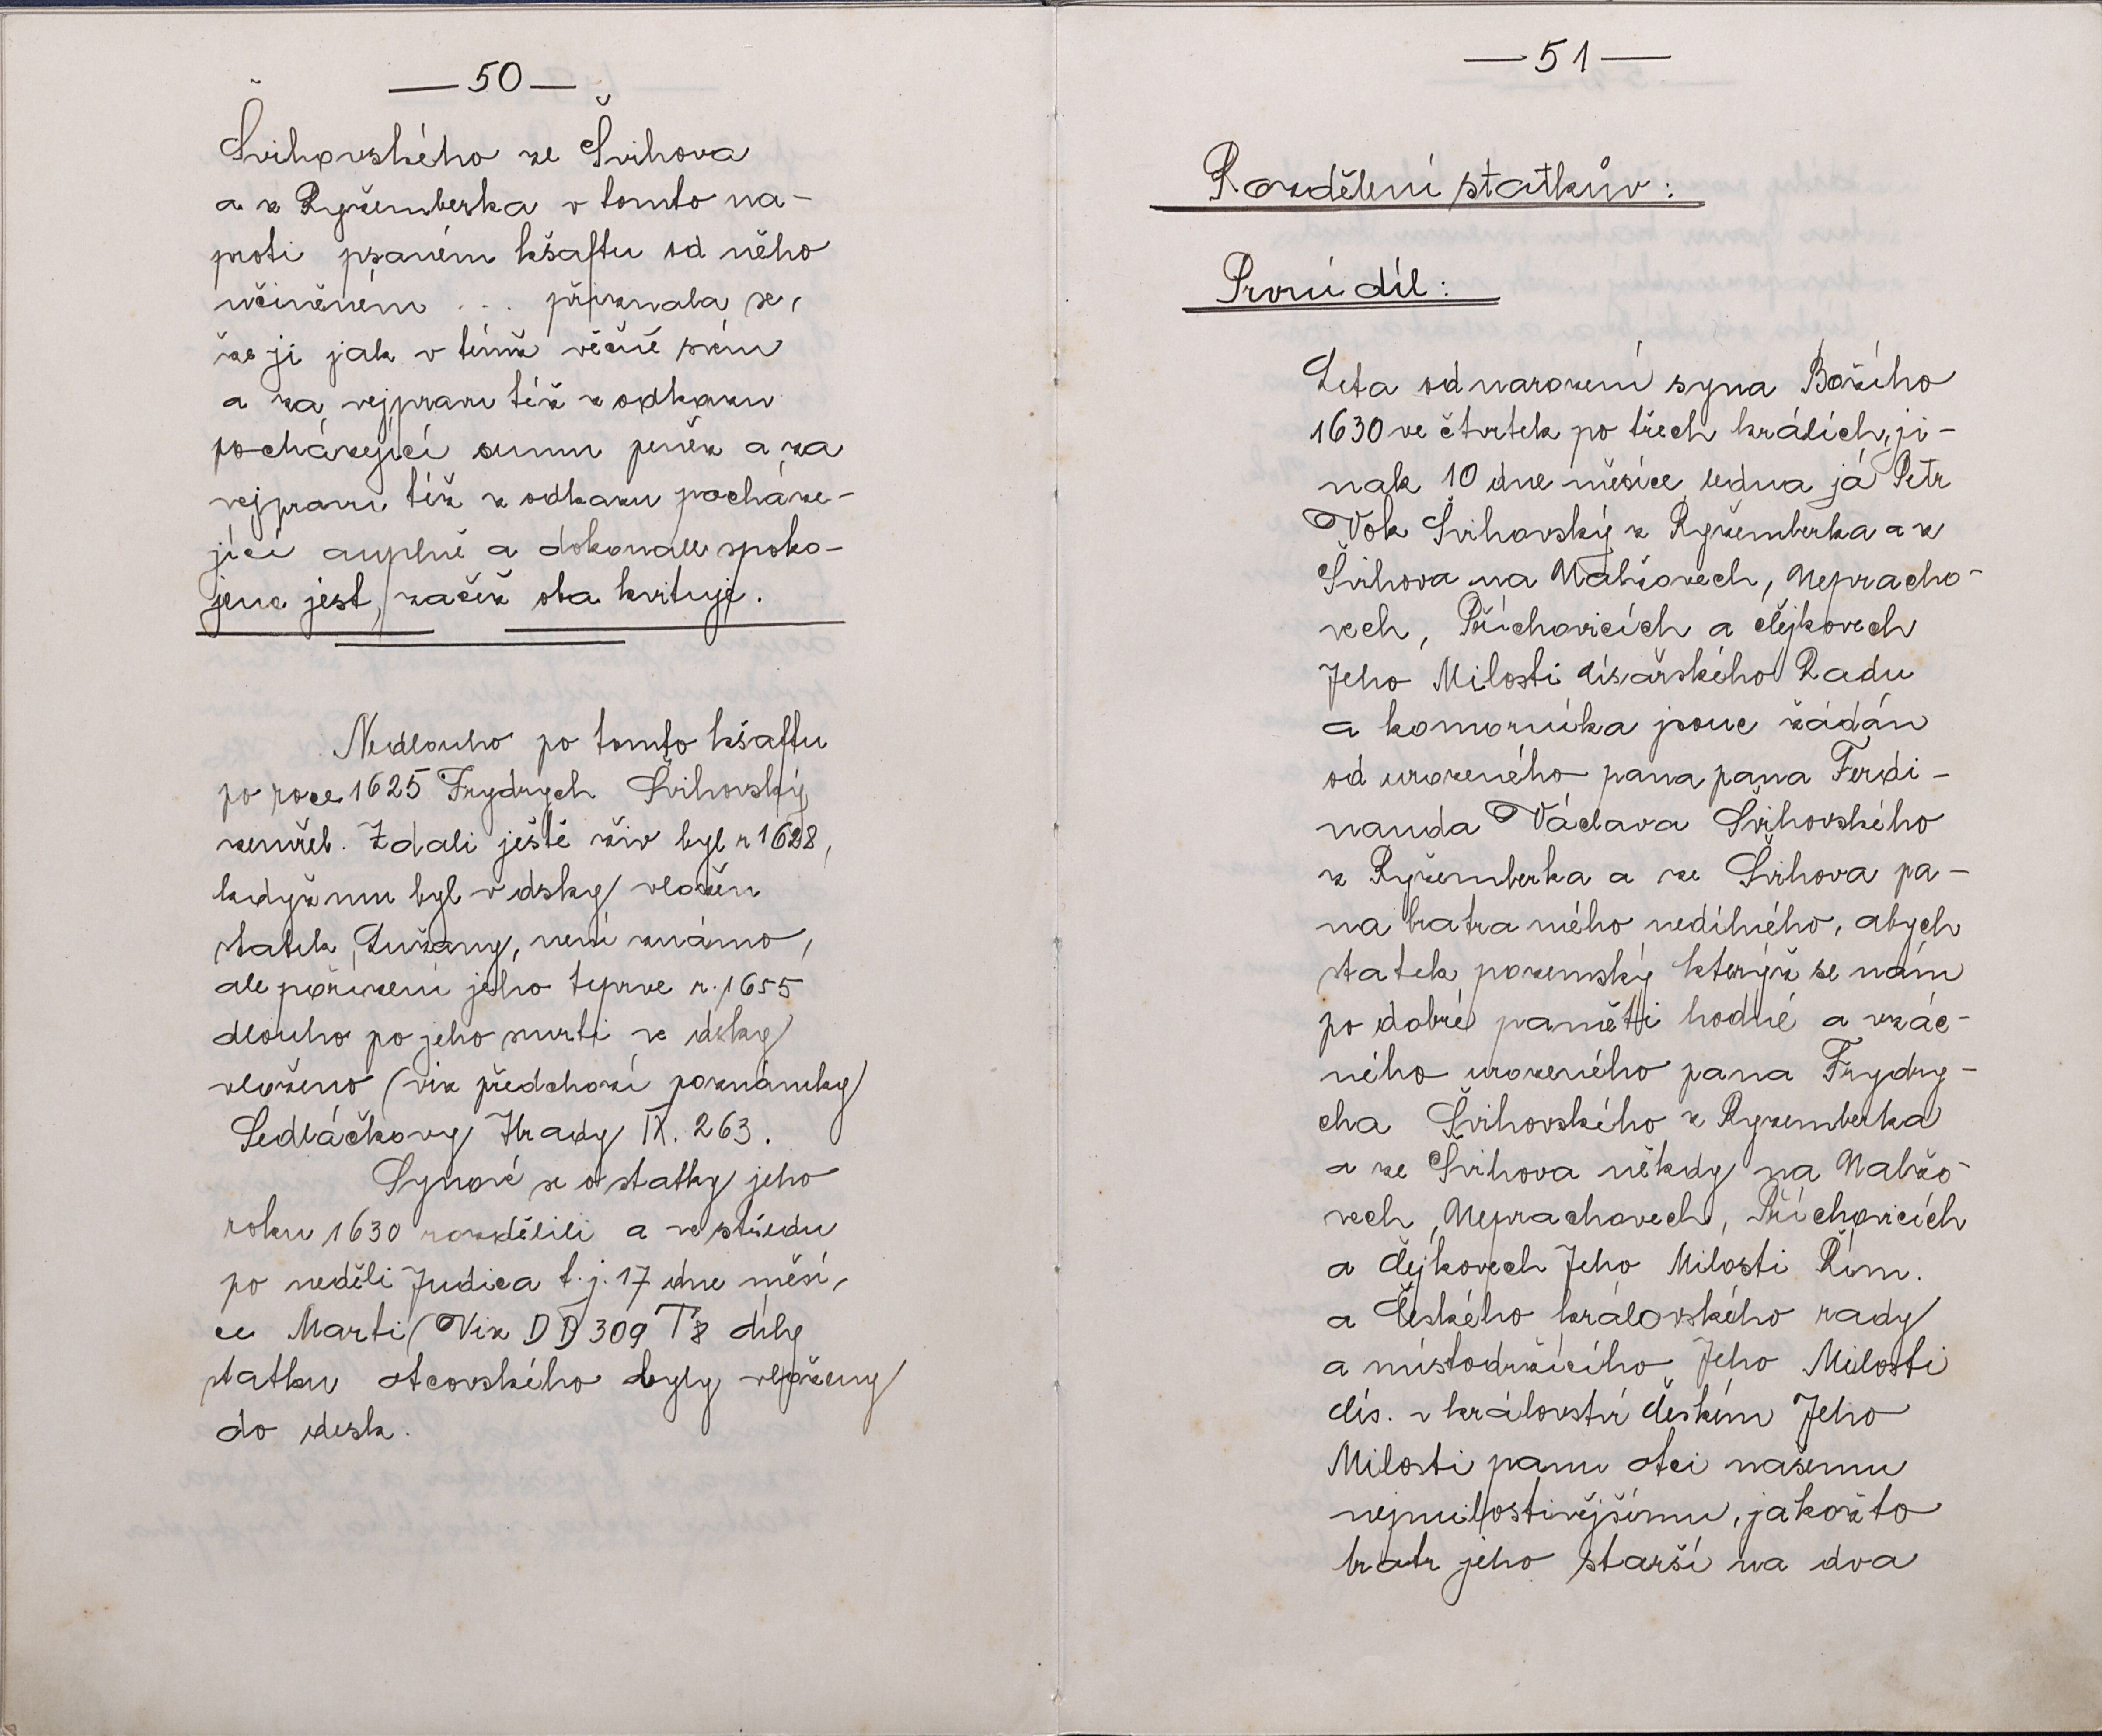 —50—
Švihovského ze Švihova
a z Ryžemberka v tomto na-
proti psaném kšaftu od něho
učiněném ... přiznala se,
že jí jak v témž věčně svém
a za vejpravu též z odkazu
pocházející sumu peněz a za
vejpravu též z odkazu pocháze-
jící auplně a dokonale spoko-
jena jest, začež oba kvituje.
Nedlouho po tomto kšaftu
po roce 1625 Frydrych Švihovský
zemřel. Zdali ještě živ byl r 1628,
když mu byl v dsky vložen
statek Lužany, není známo,
ale pořízení jeho teprve r. 1655
dlouho po jeho smrti ve dsky
vloženo (viz předchozí poznámky)
Sedláčkovy Hrady IX. 263.
Synové se o statky jeho
roku 1630 rozdělili a ve středu
po neděli Judica t. j. 17 dne měsí,
ce Marti (Viz DD 309 T8 díly
statku otcovského byly vloženy
do desk.
—51—
Rozdělení statkův:
První díl:
Leta od narození syna Božího
1630 ve čtvrtek po třech králích, ji-
nak 10 dne měsíce ledna já Petr
Vok Švihovský z Ryžemberka a z
Švihova na Nalžovech, Nepracho-
vech, Příchovicích a Čejkovech
Jeho Milosti Císařského Radu
a komorníka jsouc žádán
od urozeného pana pana Ferdi-
nanda Václava Švihovského
z Ryžemberka a ze Švihova pa-
na bratra mého nedílného, abych
statek pozemský kterýž se nám
po dobré paměti hodné a vzác-
ného urozeného pana Frydry-
cha Švihovského z Ryzemberka
a ze Švihova někdy na Nalžo-
vech, Neprachovech, Příchovicích
a Čejkovech Jeho Milosti Řím.
a Českého královského rady
a místodržícího Jeho Milosti
Cís. v království Českém Jeho
Milosti panu otci našemu
nejmilostivějšímu, jakožto
bratr jeho starší na dva